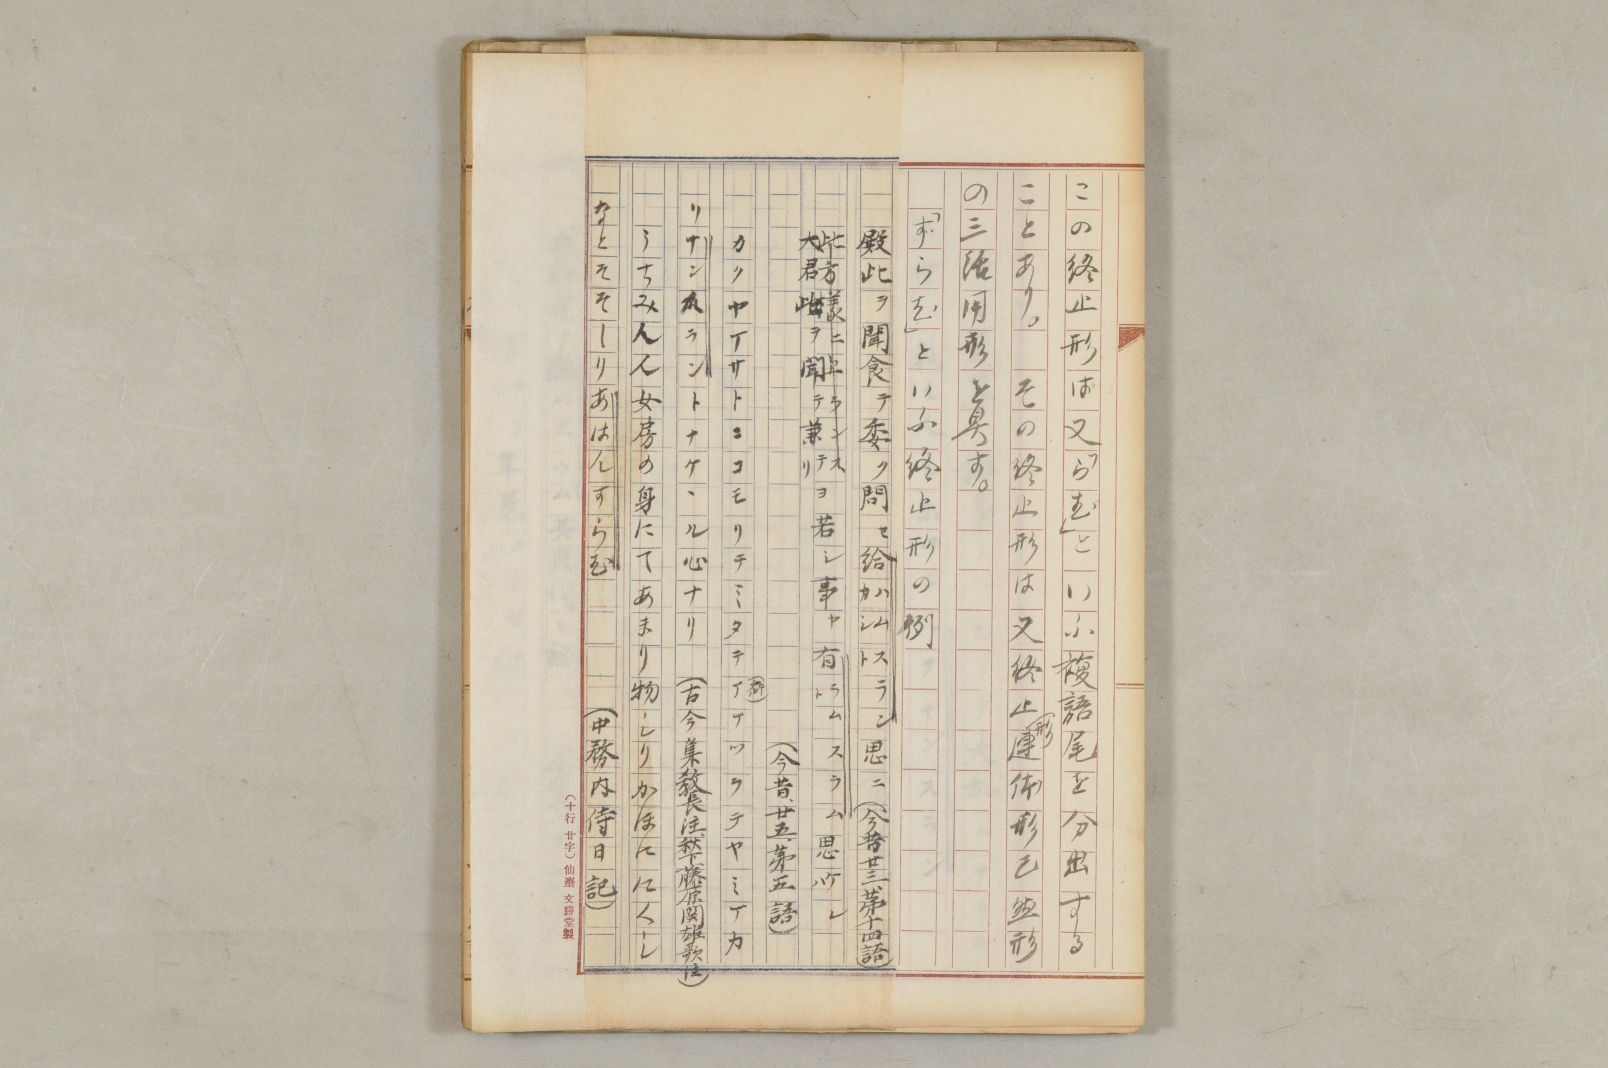 この終止形は又「らむ」といふ複語尾を分出する
ことあり。その終止形は又終止形連体形已然形
の三活用形を具す。
「ずらむ」といふ終止形の例
殿此ヲ聞食テ委ク問セ給ハムスラン思ニ(今昔廿三、第十四語)
カシト
大君此ヲ聞テ兼ヨリ
若シ事ヤ有ラムスラム思ケレ
ト
(今昔、廿五、第五語)
カクヤイサトニコモリテミタテ
リナンスラントナケヽル心ナリ(古今集教長注、秋下藤原関雄歌注)
うちみん人女房の身にてあまり物しりかほににくし
なとそそしりあはんすらむ(中務内侍日記)
(十行廿字)仙臺 文勝堂製